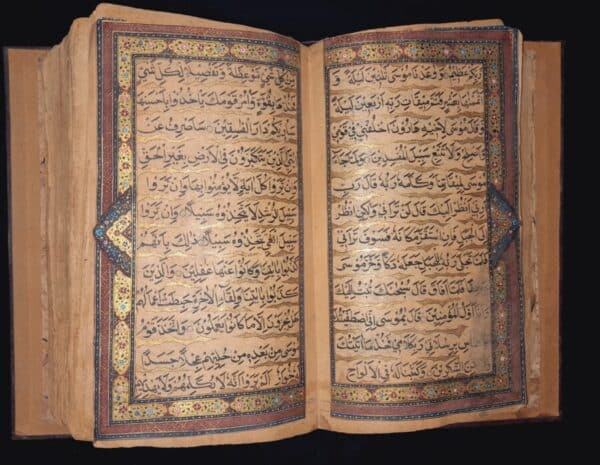 ربكم عظيم و وعدنا موسى ثلثين ليلة و
بعشر فتم ميقات ربه اربعين ليلة
وقال موسى لاخيه هارون اخلفني في قومي
واصلح ولا تتبع سبيل المفسدين ولما جاء
موسى لميقاتنا وكلمه ربه قال رب
ارني انظر اليك قال لن تراني ولكن انظر
الى الجبل فان استقر مكانه فسوف تراني
فلما تجلى ربه للجبل جعله دكا وخر موسى
صعقا فلما افاق قال سبحانك تبت اليك
وانا اول المؤمنين قال يموسى اني اصطفيتك
الناس برسالاتي وبكلامي فخذ ما اتيتك
من الشاكرين وكتبنا له في الالواح
من كل شئ موعظة وتفصيلا لكل شئ
فخذها بقوة وامر قومك ياخذوا باحسنها
ساوريكم دار الفسقين ساصرف عن
ايتي الذين يتكبرون في الارض بغير الحق
وان يروا كل اية لا يؤمنوا بها وان يروا
سبيل الرشد لا يتخذوه سبيلا وان يروا
سبيل الغي يتخذوه سبيلا ذلك بانهم
كذبوا بايتنا وكانوا عنها غفلين والذين
كذبوا بايتنا ولقاء الاخرة حبطت اعمالهم
هل يجزون الا ما كانوا يعملون واتخذ قوم
موسى من بعده من حليهم عجلا جسدا
له خوار الم يروا انه لا يكلمهم ولا يهديهم